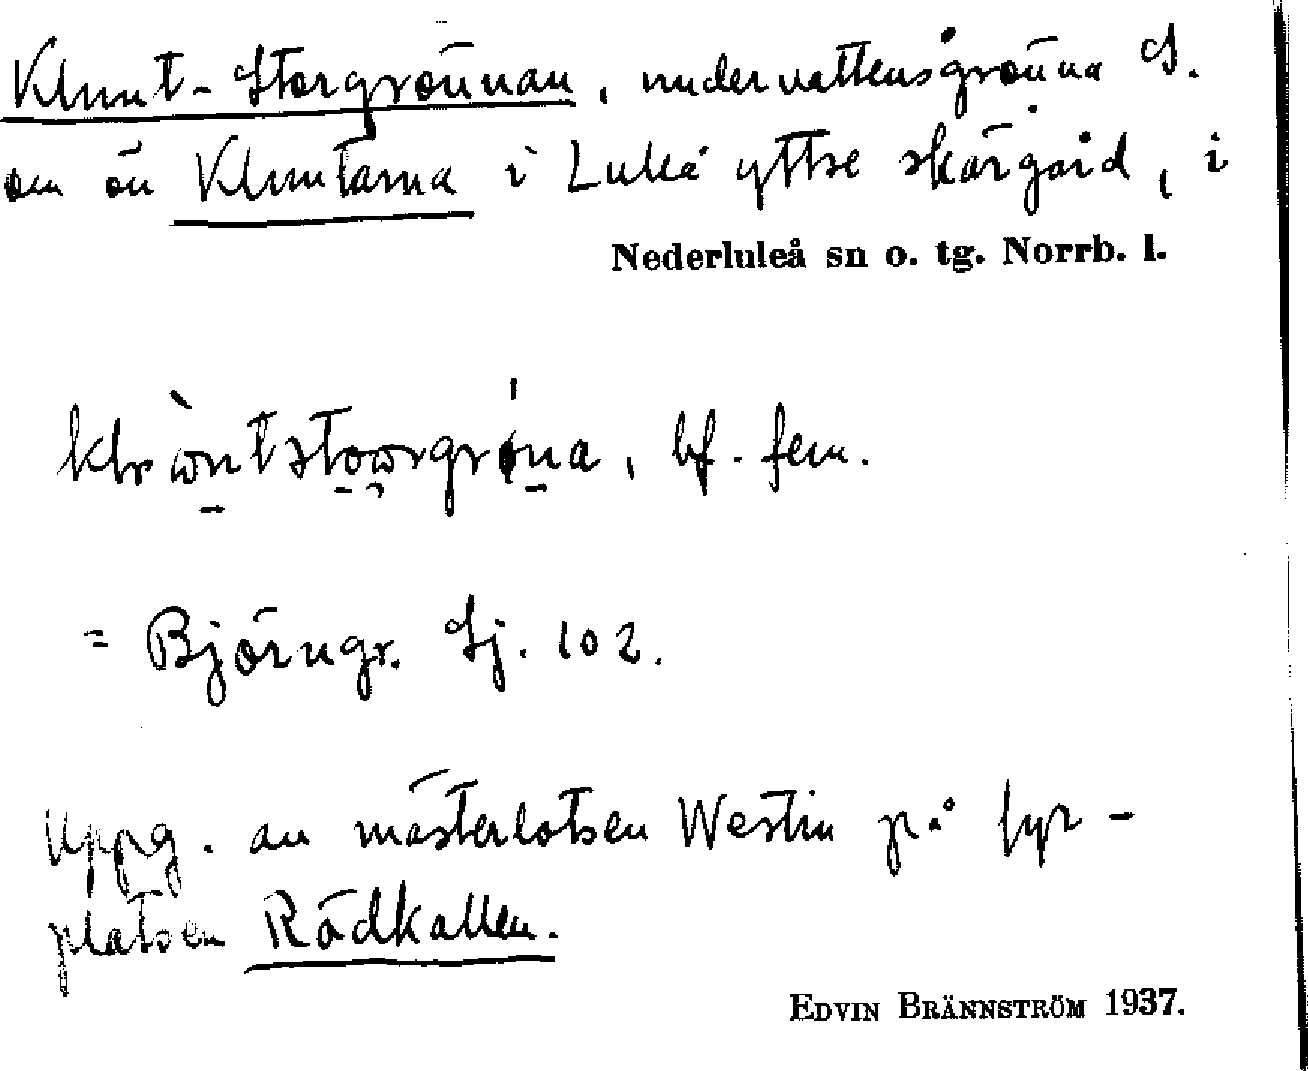 Klunt-Storgrönnan, undervattensgrönna S.
om ön Kluntarna i Luleå yttre skärgård, i
Nederluleå sn o. tg. Norrb. l.
bf. fem.
= Björngr. Sj. 102.
Uppg. av mästerlotsen Westin på fyr-
platsen Rödkallen.
EDVIN BRÄNNSTRÖM 1937.